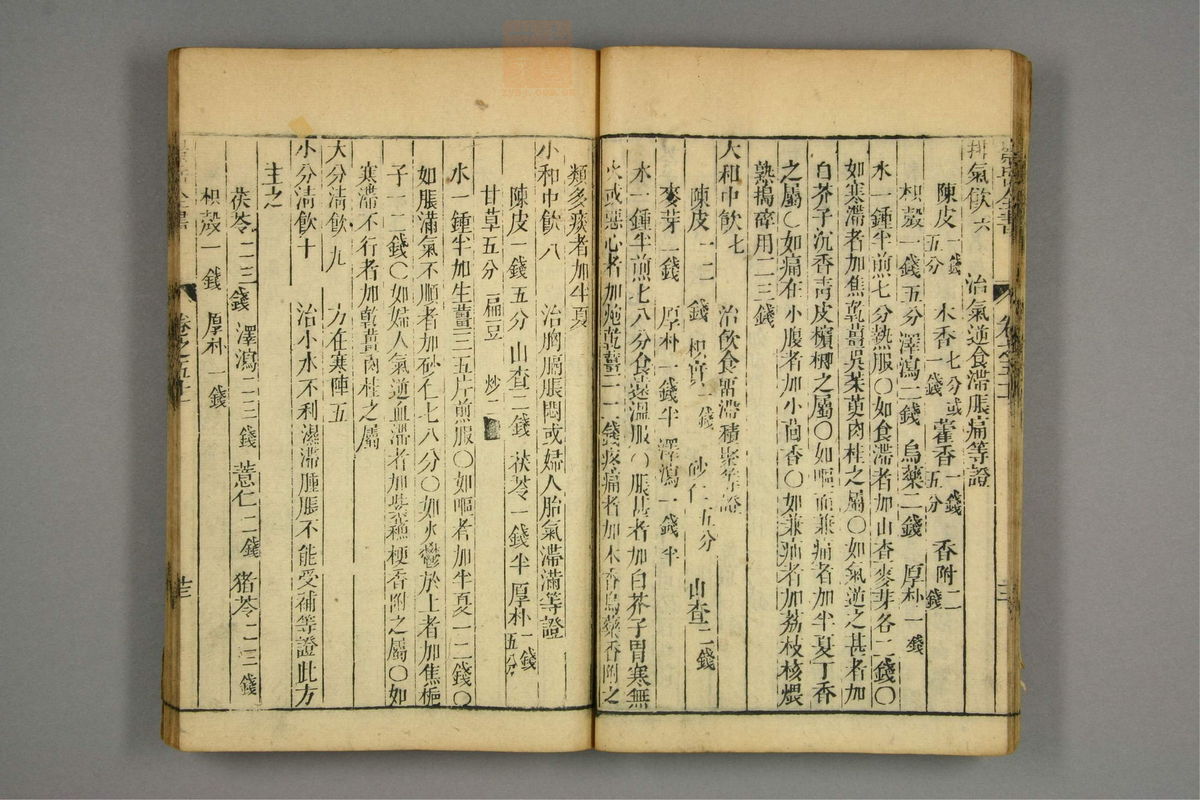 排氣飲六 治氣逆食滯脹痛等證
陳皮一錢五分 木香七分或一錢 藿香一錢五分 香附二錢
枳殼一錢五分 澤瀉二錢 烏藥二錢 厚朴一錢
水一鍾半煎七分熱服〇如食滯者加山查麥芽各二錢〇
如寒滯者加焦乾薑吳茱萸肉桂之屬〇如氣逆之甚者加
白芥子沉香青皮檳榔之屬〇如嘔而兼痛者加半夏丁香
之屬〇如痛在小腹者加小茴香〇如兼疝者加荔枝核煨
熟搗碎用二三錢
大和中飲七 治飲食留滯積聚等證
陳皮一二錢 枳實一錢 砂仁五分 山查二錢
麥芽二錢 厚朴一錢半 澤瀉一錢半
水一鍾半煎七八分食遠溫服〇脹甚者加白芥子胃寒無
火或惡心者加炮乾薑一二錢疼痛者加木香烏藥香附之
類多痰者加半夏
小和中飲八 治胸膈脹悶或婦人胎氣滯滿等證
陳皮一錢五分 山查二錢 茯苓一錢半 厚朴一錢五分
甘草五分 扁豆炒二
水一鍾半加生薑三五片煎服〇如嘔者加半夏一二錢〇
如脹滿氣不順者加砂仁七八分〇如火鬱於上者加焦梔
子一二錢〇如婦人氣逆血滯者加紫蘇梗香附之屬〇如
寒滯不行者加乾薑肉桂之屬
大分清飲九 方在寒陣五
小分清飲十 治小水不利濕滯腫脹不能受補等證此方
主之
茯苓二三錢 澤瀉二三錢 薏仁二錢 猪苓二三錢
枳殼一錢 厚朴一錢